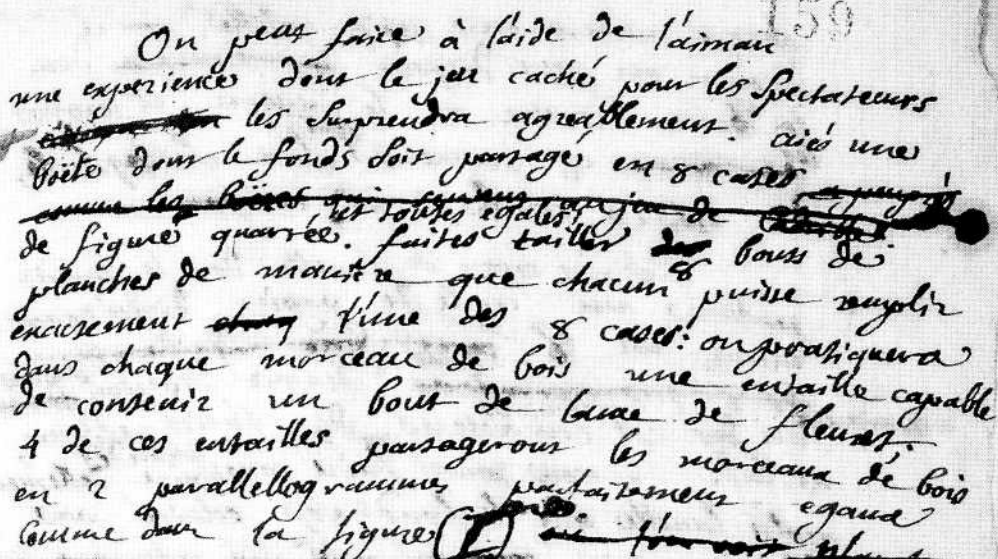 159
On peut faire à l'aide de l'aiman
une experience dont le jeu caché pour les Spectateurs
les surprendra agreablement. aiés une
boëte dont le fonds soit partagé en 8 cases a peu prés
comme les boëtes qui servent au jeu de
et toutes egales,
de figure quarrée. faites tailler des 8 bouts de
planches de maniere que chacun puisse remplir
exactement l'une des 8 cases: on pratiquera
dans chaque morceau de bois une entaille capable
de contenir un bout de lame de fleuret;
4 de ces entailles partageront les morceaux de bois
en 2 parallellogrammes parfaitement egaux
comme dans la figure 1.